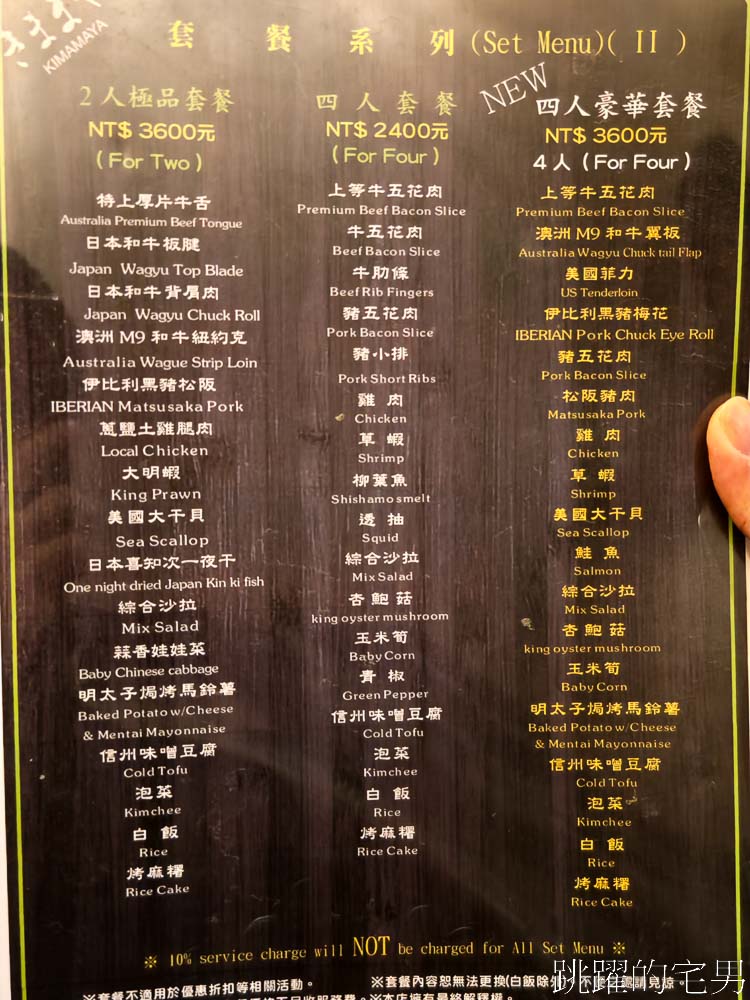 きままや
KIMAMAYA
套餐系列(Set Menu)( II )
2人極品套餐
NT$ 3600元
(For Two)
特上厚片牛舌
Australia Premium Beef Tongue
日本和牛板腱
Japan Wagyu Top Blade
日本和牛背肩肉
Japan Wagyu Chuck Roll
澳洲 M9 和牛紐約克
Australia Wague Strip Loin
伊比利黑豬松阪
IBERIAN Matsusaka Pork
蔥鹽土雞腿肉
Local Chicken
大明蝦
King Prawn
美國大干貝
Sea Scallop
日本喜知次一夜干
One night dried Japan Kin ki fish
綜合沙拉
Mix Salad
蒜香娃娃菜
Baby Chinese cabbage
明太子焗烤馬鈴薯
Baked Potato w/Cheese
& Mentai Mayonnaise
信州味噌豆腐
Cold Tofu
泡菜
Kimchee
白飯
Rice
烤麻糬
Rice Cake
四人套餐
NT$ 2400元
(For Four)
上等牛五花肉
Premium Beef Bacon Slice
牛五花肉
Beef Bacon Slice
牛肋條
Beef Rib Fingers
豬五花肉
Pork Bacon Slice
豬小排
Pork Short Ribs
雞肉
Chicken
草蝦
Shrimp
柳葉魚
Shishamo smelt
透抽
Squid
綜合沙拉
Mix Salad
杏鮑菇
king oyster mushroom
玉米筍
Baby Corn
青椒
Green Pepper
信州味噌豆腐
Cold Tofu
泡菜
Kimchee
白飯
Rice
烤麻糬
Rice Cake
NEW
四人豪華套餐
NT$ 3600元
4人 (For Four)
上等牛五花肉
Premium Beef Bacon Slice
澳洲 M9 和牛翼板
Australia Wagyu Chuck tail Flap
美國菲力
US Tenderloin
伊比利黑豬梅花
IBERIAN Pork Chuck Eye Roll
豬五花肉
Pork Bacon Slice
松阪豬肉
Matsusaka Pork
雞肉
Chicken
草蝦
Shrimp
美國大干貝
Sea Scallop
鮭魚
Salmon
綜合沙拉
Mix Salad
杏鮑菇
king oyster mushroom
玉米筍
Baby Corn
明太子焗烤馬鈴薯
Baked Potato w/Cheese
& Mentai Mayonnaise
信州味噌豆腐
Cold Tofu
泡菜
Kimchee
白飯
Rice
烤麻糬
Rice Cake
※ 10% service charge will NOT be charged for All Set Menu ※
※套餐不適用於優惠折扣等相關活動。
※套餐內容恕無法更換(白飯除外
請見諒。
※本店擁有最終解釋權。
跳躍的宅男